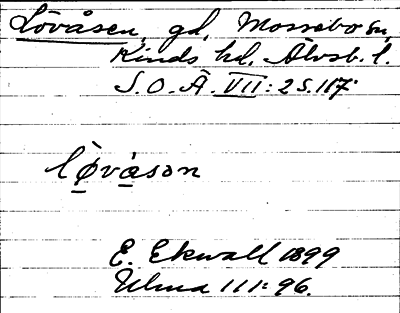 Lövåsen, gd, Mossebo sn,
Kinds hd, Älvsb. l.
S.O.Ä. VII: 2 s. 117.
E. Ekwall 1899
Ulma 111: 96.